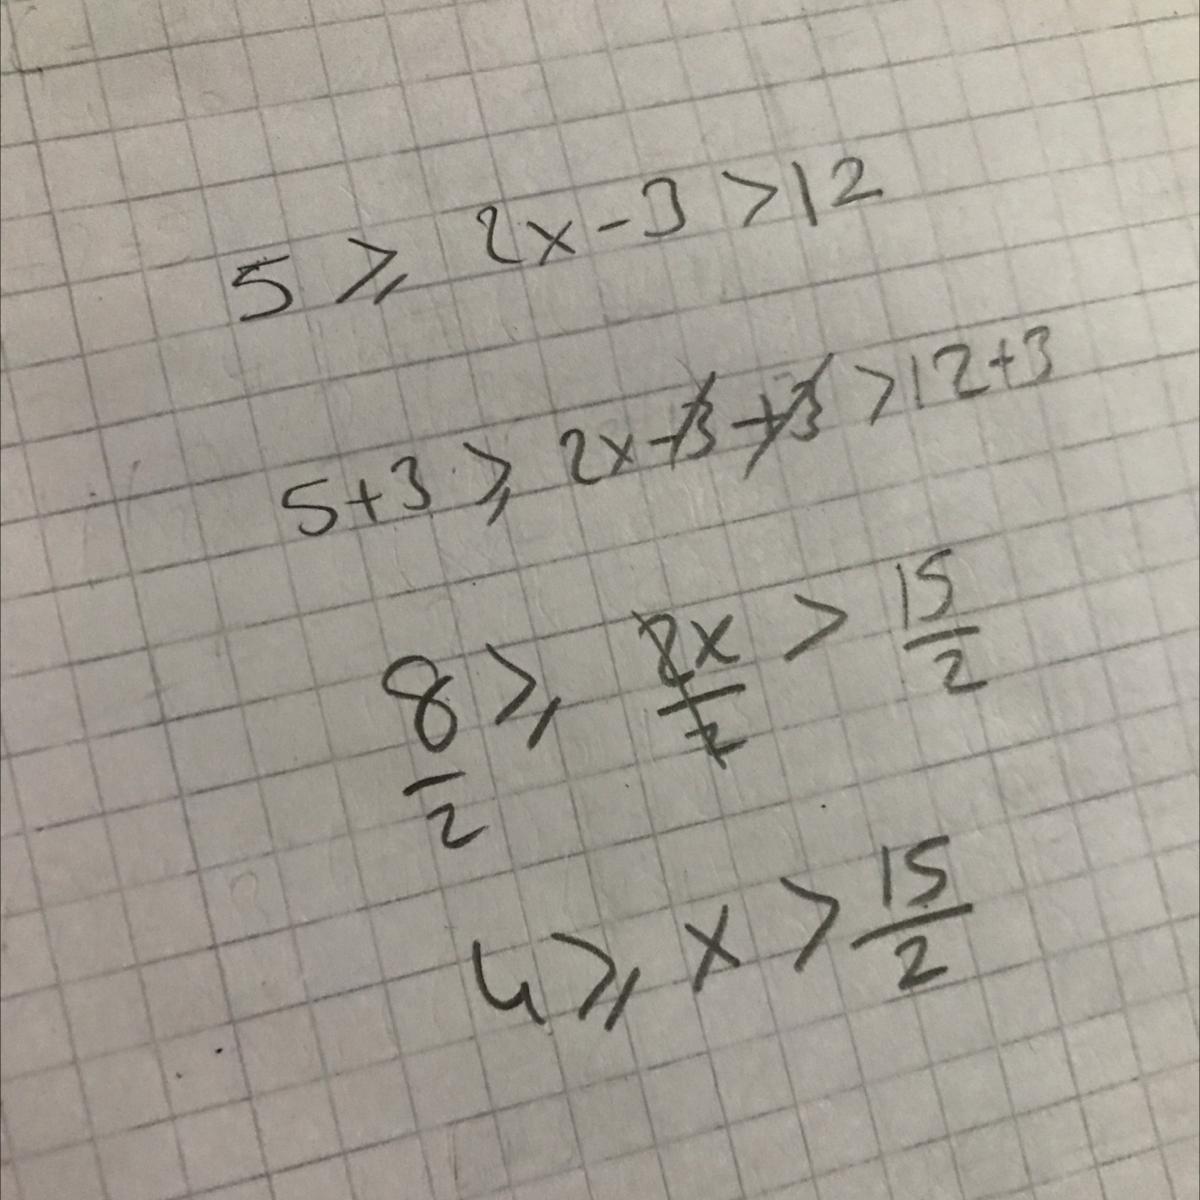 5 ⩾ 2x - 3 > 12
5+3 ⩾ 2x-3+3 > 12+3
8/2 ⩾ 2x/2 > 15/2
4 ⩾ x > 15/2